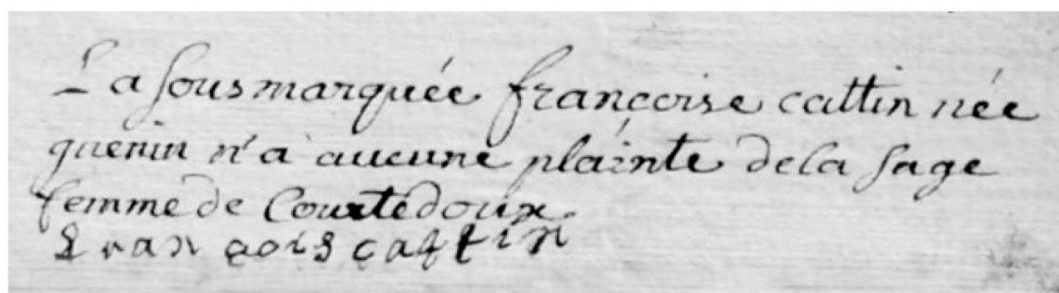 La sousmarquée françoise cattin née
quenin n'a aucune plainte dela sage
femme de Courtedoux.
Françoisçattin